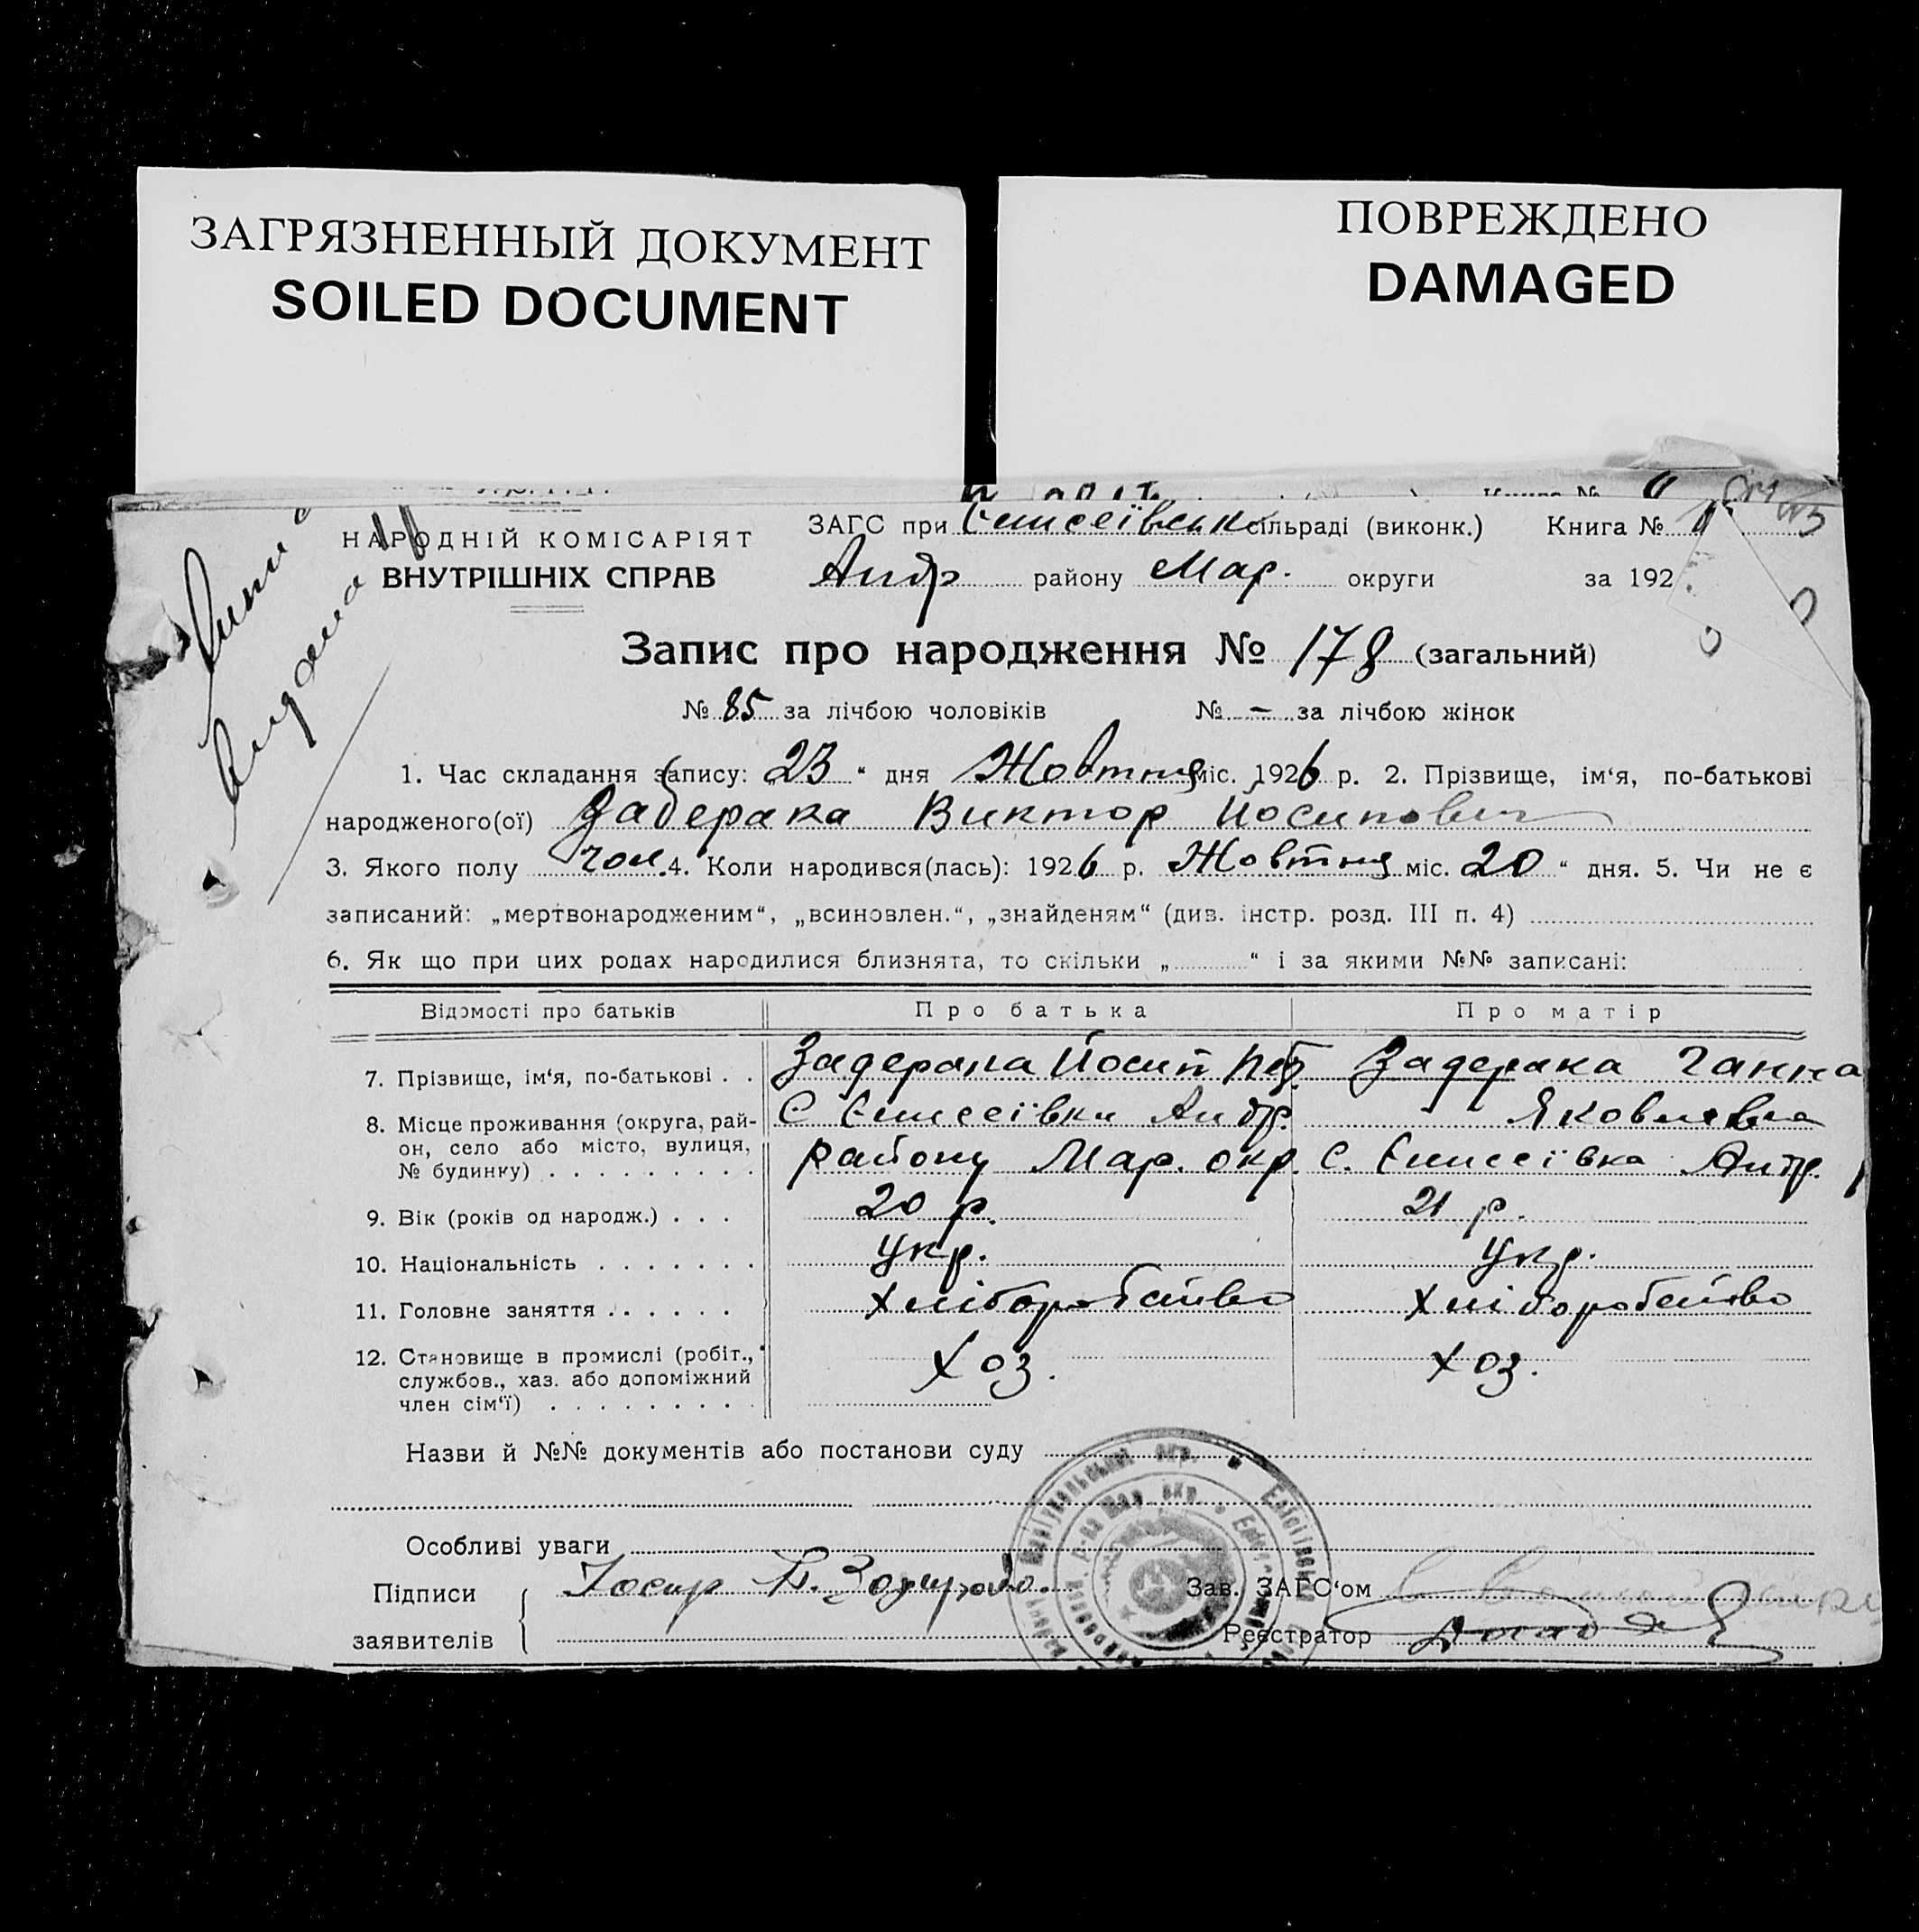 ЗАГРЯЗНЕННЫЙ ДОКУМЕНТ
SOILED DOCUMENT
ПОВРЕЖДЕНО
DAMAGED
НАРОДНІЙ КОМІСАРІЯТ
ВНУТРІШНІХ СПРАВ
ЗАГС при Єлисеївськ сільраді (виконк.) Книга №
Андр району Мар. округи за 192
Запис про народження № 178 (загальний)
№ 85 за лічбою чоловіків № – за лічбою жінок
1. Час складання запису: „23“ дня Жовтня міс. 1926 р. 2. Прізвище, ім‘я, по-батькові
народженого(ої) Задерака Виктор Йосипович
3. Якого полу чол. 4. Коли народився(лась): 1926 р. Жовтня міс. „20“ дня. 5. Чи не є
записаний: „мертвонародженим“, „всиновлен.“, „знайденям“ (див. інстр. розд. III п. 4)
6. Як що при цих родах народилися близнята, то скільки „ “ і за якими №№ записані:
Відомості про батьків Про батька Про матір
7. Прізвище, ім‘я, по-батькові . . Задерака Йосип Задерака Ганна
Яковлевна
8. Місце проживання (округа, рай-
он, село або місто, вулиця,
№ будинку)
С Єлисеївки Андр.
району Мар. окр. С. Єлисеївка Андр.
9. Вік (років од народж.) . . . 20 р. 21 р.
10. Національність . . . . . . . Укр. Укр.
11. Головне заняття . . . . . . Хліборобство Хліборобство
12. Становище в промислі (робіт.,
службов., хаз. або допоміжний
член сім‘ї)
Хоз. Хоз.
Назви й №№ документів або постанови суду
Особливі уваги
Підписи
заявителів
Зав. ЗАГС‘ом
Реєстратор